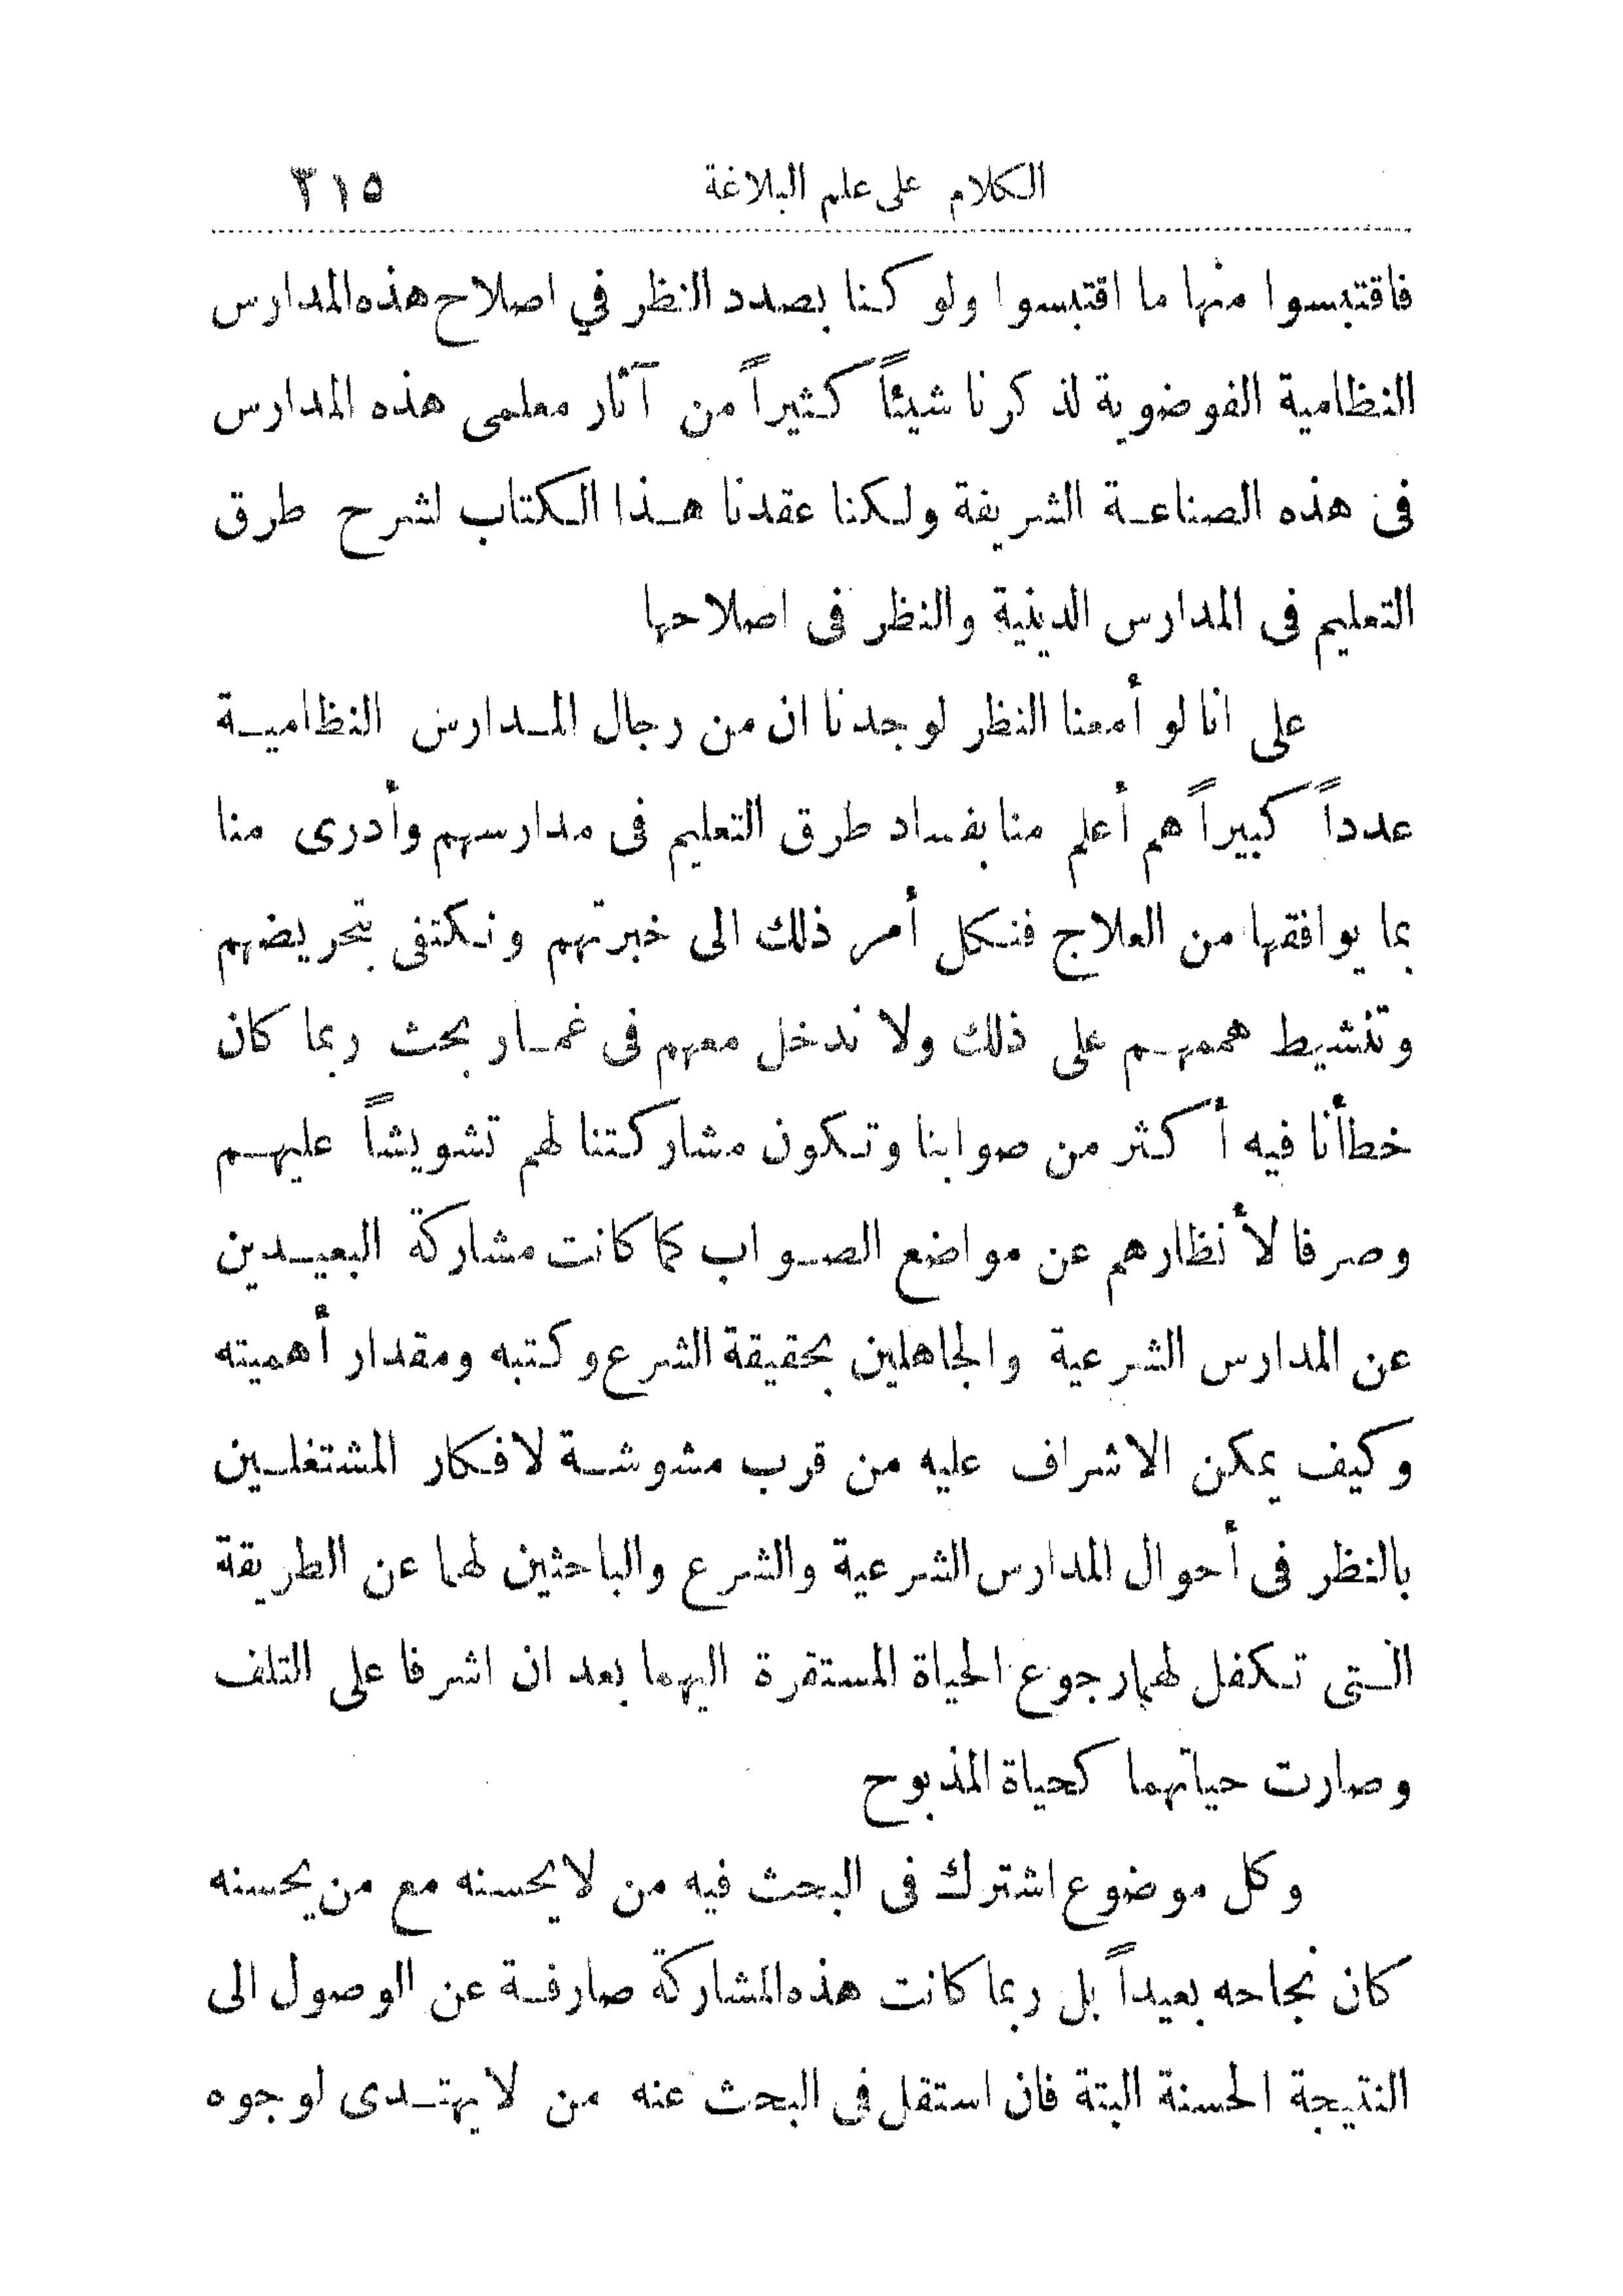 الكلام على علم البلاغة ٣١٥
فاقتبسوا منها ما اقتبسوا ولو كنا بصدد النظر في اصلاح هذه المدارس
النظامية الفوضوية لذكرنا شيئاً كثيراً من آثار معلمى هذه المدارس
فى هذه الصناعة الشريفة ولكنا عقدنا هذا الكتاب لشرح طرق
التعليم فى المدارس الدينية والنظر فى اصلاحها
على انا لو أمعنا النظر لوجدنا ان من رجال المدارس النظامية
عدداً كبيراً هم أعلم منا بفساد طرق التعليم فى مدارسهم وأدرى منا
بما يوافقها من العلاج فنكل أمر ذلك الى خبرتهم ونكتفى بتحريضهم
وتنشيط هممهم على ذلك ولا ندخل معهم فى غمار بحث ربما كان
خطأنا فيه أكثر من صوابنا وتكون مشاركتنا لهم تشويشاً عليهم
وصرفا لأنظارهم عن مواضع الصواب كما كانت مشاركة البعيدين
عن المدارس الشرعية والجاهلين بحقيقة الشرع وكتبه ومقدار أهميته
وكيف يمكن الاشراف عليه من قرب مشوشة لافكار المشتغلين
بالنظر فى أحوال المدارس الشرعية والشرع والباحثين لهما عن الطريقة
التى تكفل لهما رجوع الحياة المستقرة اليهما بعد ان اشرفا على التلف
وصارت حياتهما كحياة المذبوح
وكل موضوع اشترك فى البحث فيه من لا يحسنه مع من يحسنه
كان نجاحه بعيداً بل ربما كانت هذه المشاركة صارفة عن الوصول الى
النتيجة الحسنة البتة فان استقل فى البحث عنه من لا يهتدى لوجوه